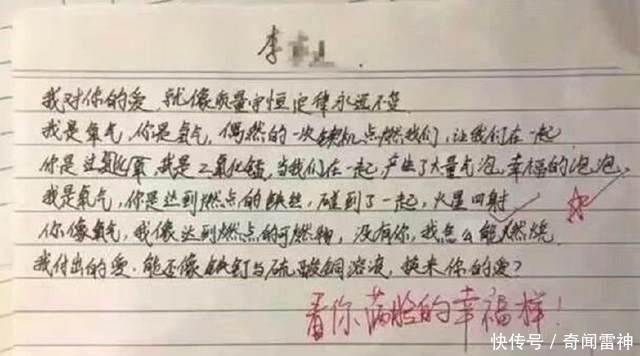 李
我对你的爱,就像质量守恒定律永远不变
我是氧气,你是氢气,偶然的一次契机点燃我们,让我们在一起
你是过氧化氢,我是二氧化锰,当我们在一起,产生了大量气泡,幸福的泡泡,
我是氧气,你是达到燃点的铁丝,碰到了一起,火星四射
你像氧气,我像达到燃点的可燃物,没有你,我怎么能燃烧
我付出的爱.能否像铁钉与硫酸铜溶液,换来你的爱?
看你满脸的幸福样!
快传号/奇闻雷神